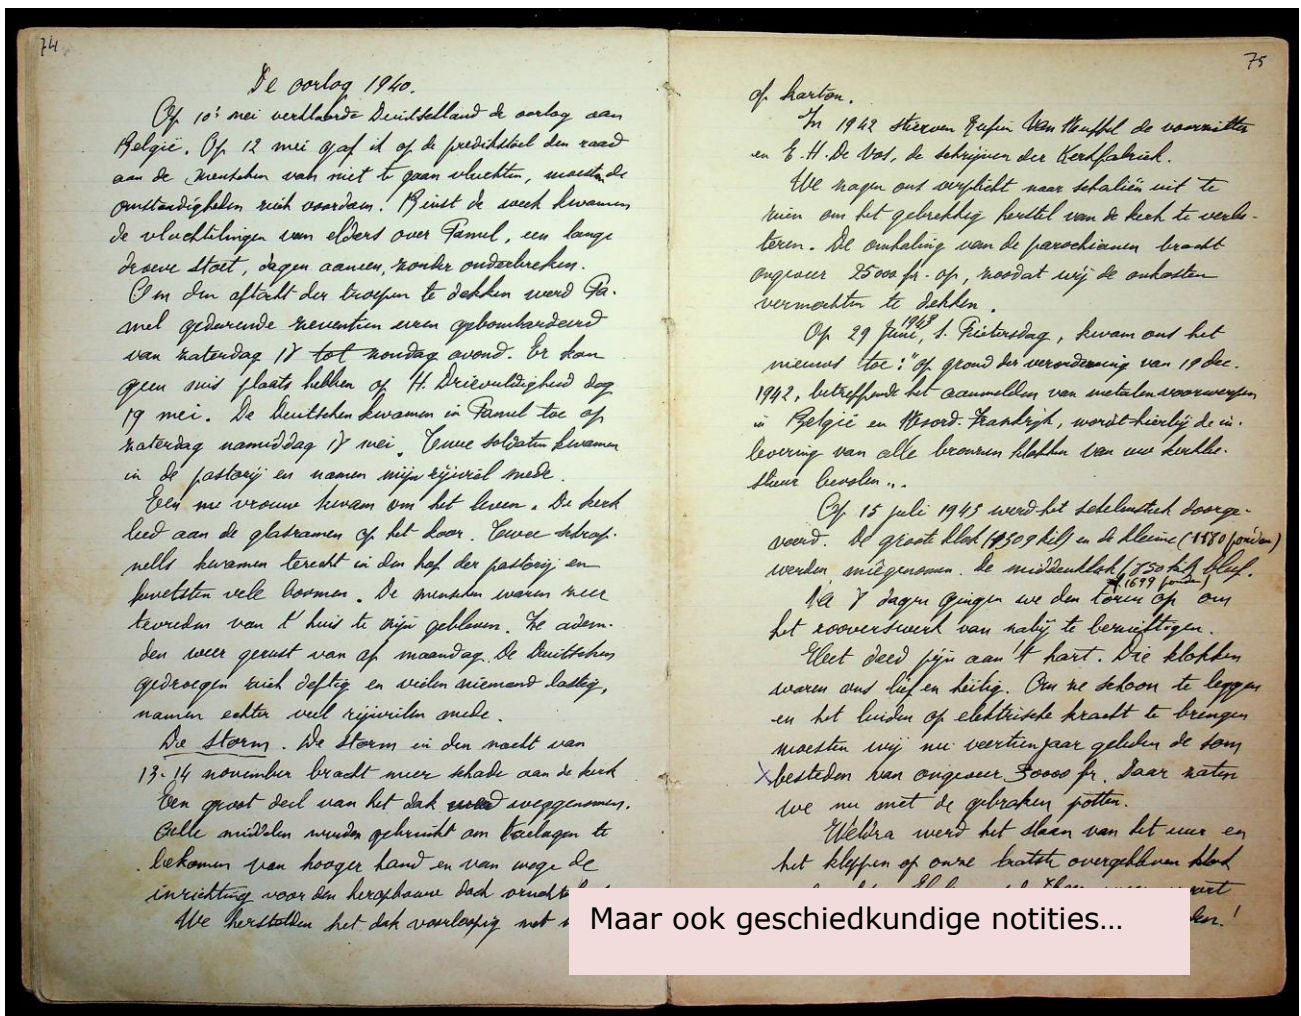 74
De oorlog 1940.
Op 10e mei verklaarde Deutschland de oorlog aan
België. Op 12 mei gaf ik op de predikstoel den raad
aan de menschen van niet te gaan vluchten, moesten de
omstandigheden zich voordoen. Binst de week kwamen
de vluchtelingen van elders over Pamel, een lange
droeve stoet, dagen aaneen, zonder onderbreken.
Om den aftocht der troepen te dekken werd Pa-
mel gedurende zeventien uren gebombardeerd
van zaterdag 18 tot zondag avond. Er kon
geen mis plaats hebben op H. Drievuldigheid dag
19 mei. De Deutschen kwamen in Pamel toe op
zaterdag namiddag 18 mei. Twee soldaten kwamen
in de pastorij en namen mijn rijwiel mede.
Eén vrouw kwam om het leven. De kerk
leed aan de glasramen op het koor. Twee schrap-
nells kwamen terecht in den hof der pastorij en
kwetsten vele boomen. De menschen waren zeer
tevreden van t' huis te zijn gebleven. Ze adem-
den weer gerust van af maandag. De Duitschen
gedroegen zich deftig en vielen niemand lastig,
namen echter veel rijwielen mede.
Die Storm. De storm in den nacht van
13-14 november bracht meer schade aan de kerk
Een groot deel van het dak werd weggenomen.
Alle middelen werden gebruikt om toelagen te
bekomen van hooger hand en van wege de
inrichting voor den heropbouw doch
We herstelden het dak voorloopig met
75
of karton.
In 1942 stierven Rufin Van Nuffel de voorzitter
en E.H. De Vos, de schrijver der Kerkfabriek.
We zagen ons verplicht naar schaliën uit te
zien om het gebrekkig herstel van de kerk te verbe-
teren. De omhaling van de parochianen bracht
ongeveer 25000 fr. op, zoodat wij de onkosten
vermochten te dekken.
Op 29 Juni 1943, S. Pietersdag, kwam ons het
nieuws toe: "op grond der verordening van 19 dec.
1942, betreffende het aanmelden van metalen voorwerpen
in België en Noord-Frankrijk, wordt hierbij de in-
levering van alle bronzen klokken van uw kerkbe-
stuur bevolen".
Op 15 juli 1943 werd het schelmstuk doorge-
voerd. De groote klok (1509 kil) en de kleine (1580 ponden)
werden meêgenomen. De middenklok (850 kil) bleef.
(1699 ponden)
Na 8 dagen gingen we den toren op om
het rooverswerk van nabij te bezichtigen.
Het deed pijn aan 't hart. Die klokken
waren ons lief en heilig. Om ze schoon te leggen
en het luiden op elektrische kracht te brengen
moesten wij nu veertien jaar geleden de som
x besteden van ongeveer 30000 fr. Daar zaten
we nu met de gebroken potten.
Weldra werd het slaan van het uur en
het kleppen op onze laatste overgebleven klok
Maar ook geschiedkundige notities…